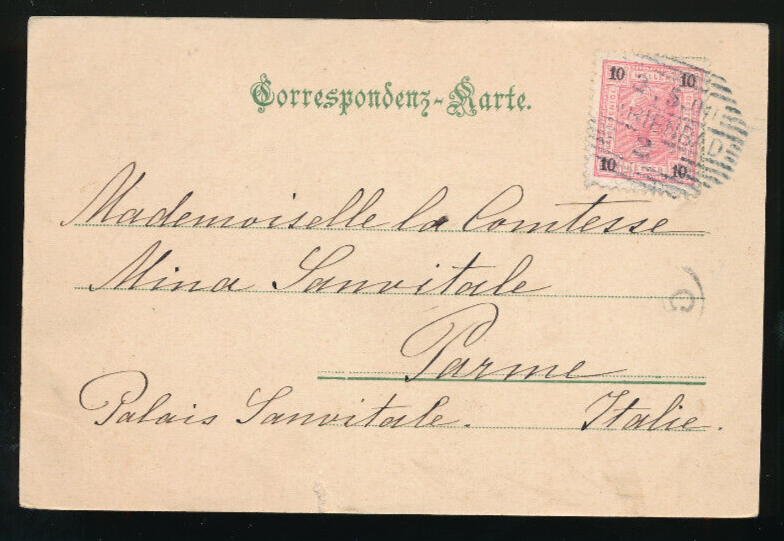 Correspondenz-Karte.
10 HELLER 10
10 10
2
Mademoiselle la Comtesse
Mina Sanvitale
Parme
Palais Sanvitale. Italie.